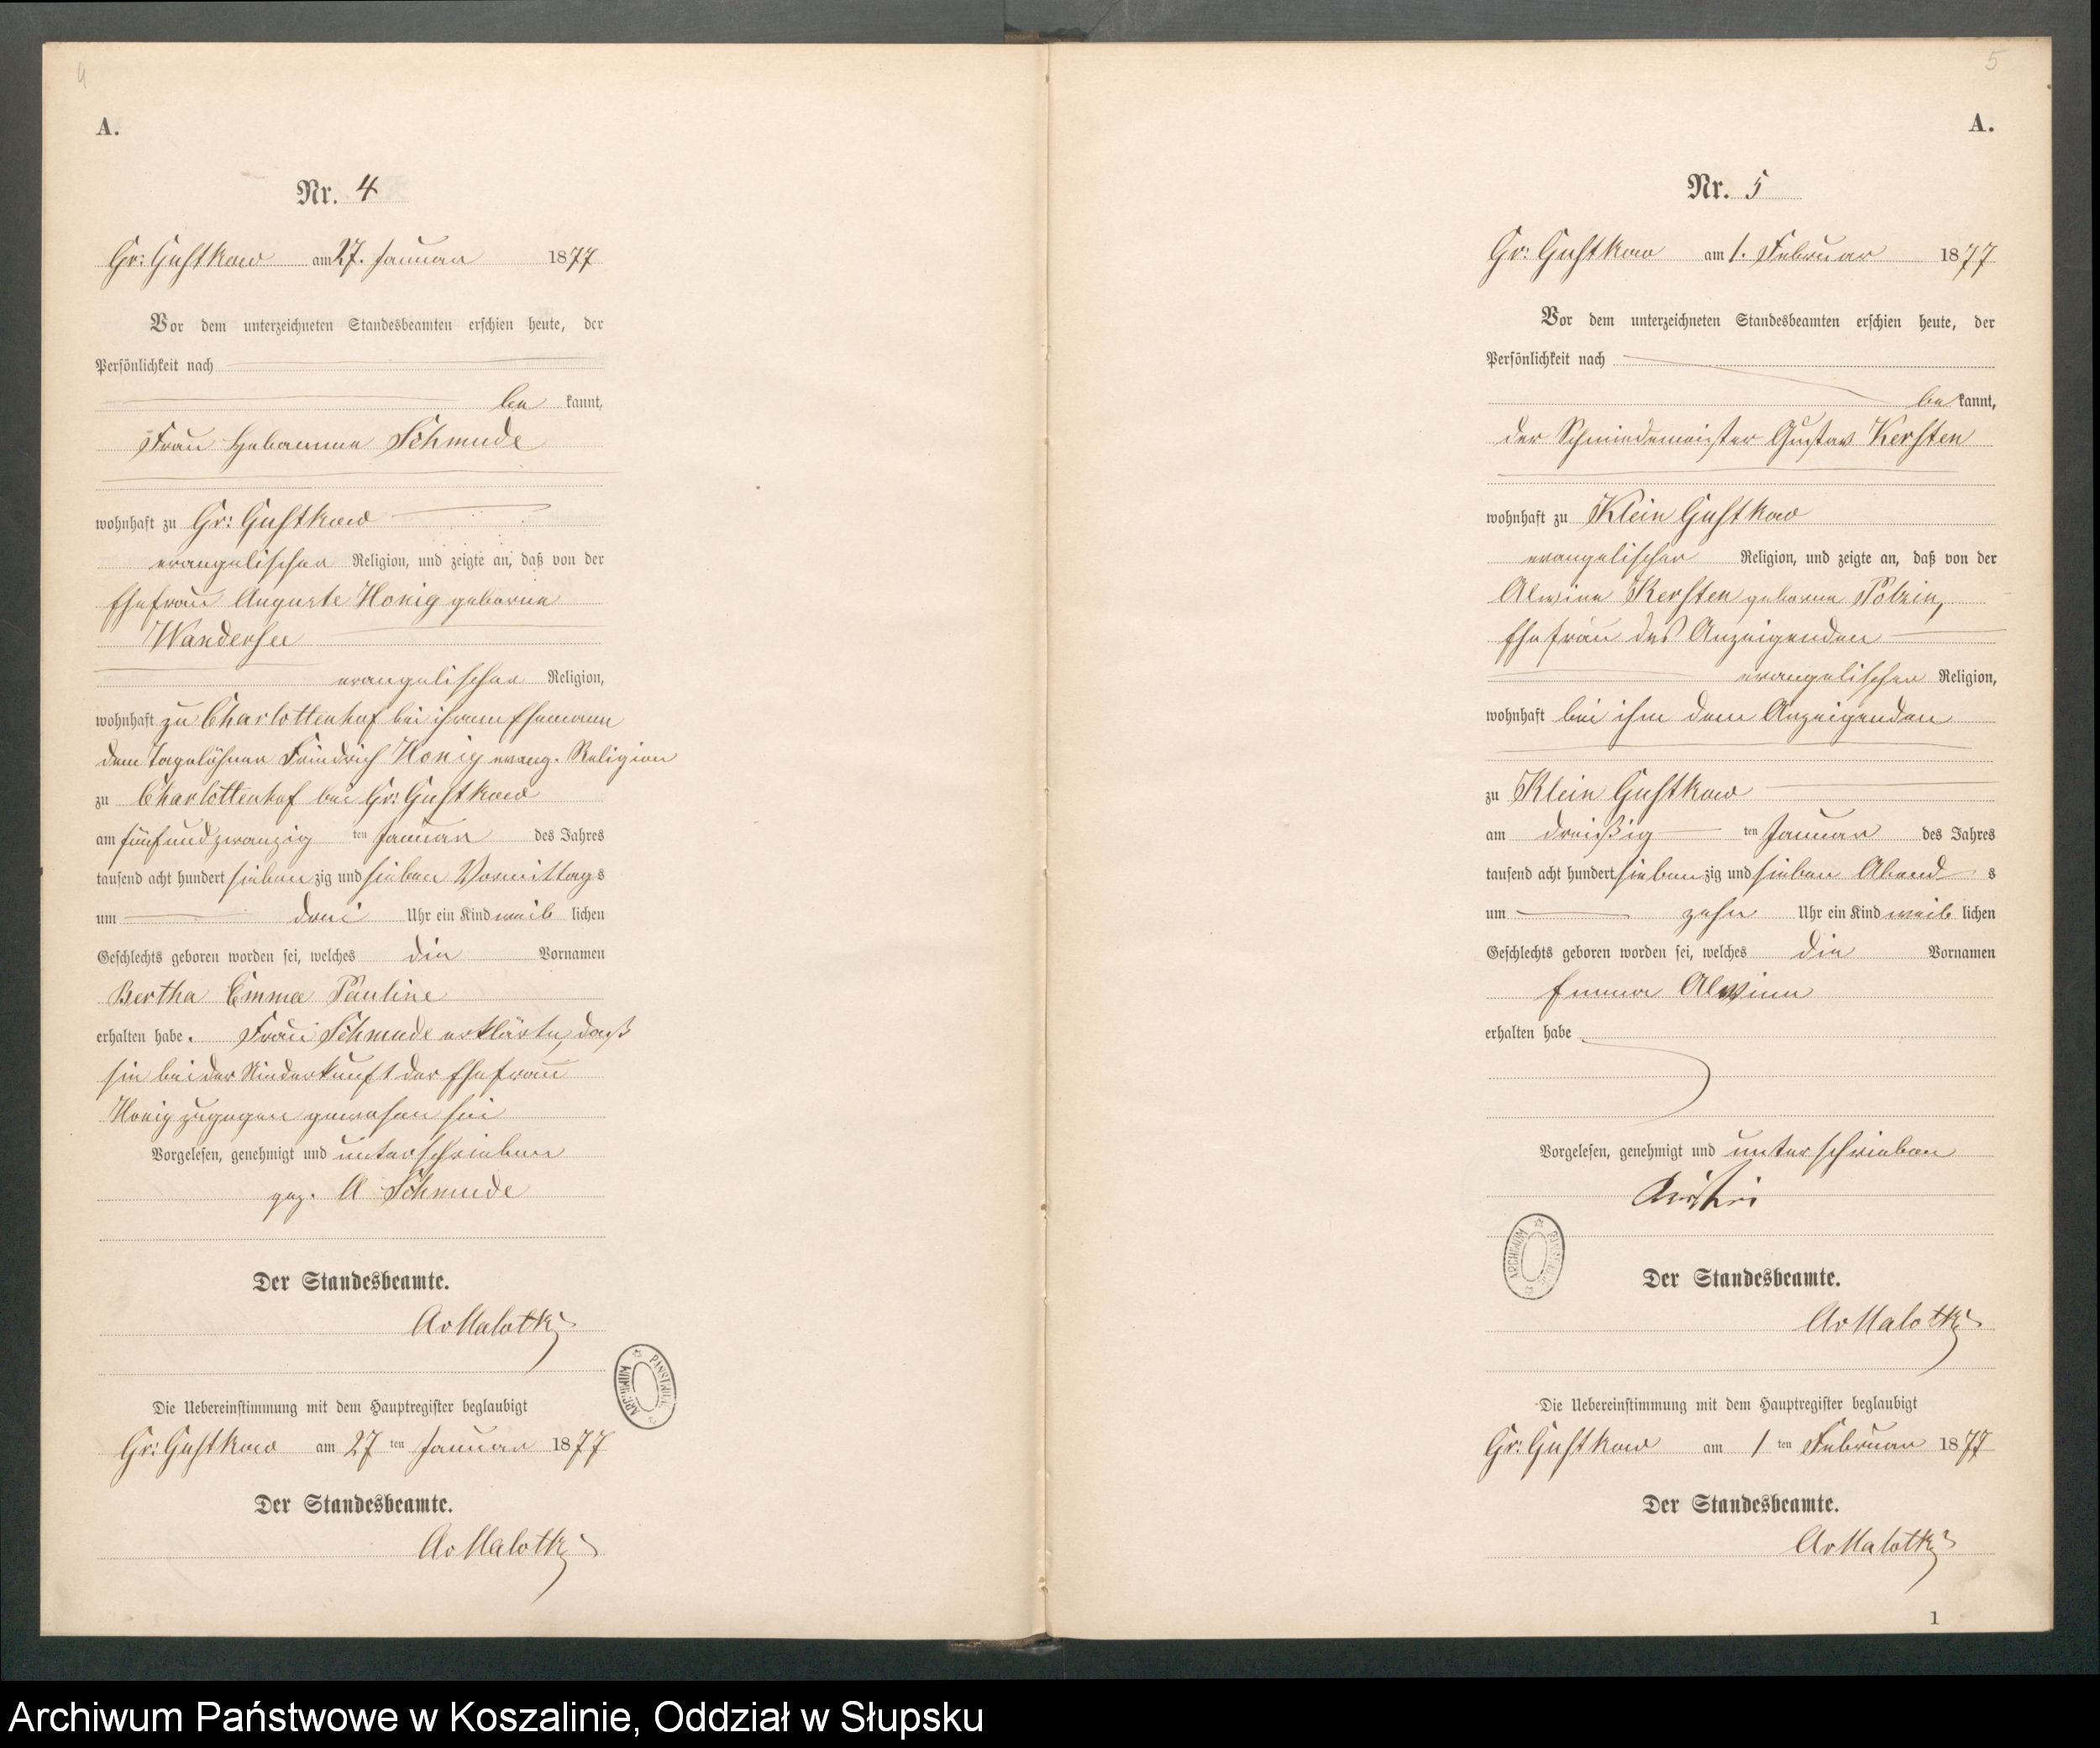 4
A.
Nr. 4
Gr: Gustkow am 27. Januar 1877
Vor dem unterzeichneten Standesbeamten erschien heute, der
Persönlichkeit nach
be kannt,
Frau Hebamme Schmude
wohnhaft zu Gr: Gustkow
evangelischer Religion, und zeigte an, daß von der
Ehefrau Auguste Honig geborne
Wandersee
evangelischer Religion,
wohnhaft zu Charlottenhof bei ihrem Ehemann
dem Tagelöhner Friedrich Honig evang. Religion
zu Charlottenhof bei Gr: Gustkow
am fünfundzwanzig ten Januar des Jahres
tausend acht hundert sieben zig und sieben Vormittags
um drei Uhr ein Kind weib lichen
Geschlechts geboren worden sei, welches die Vornamen
Bertha Emma Pauline
erhalten habe. Frau Schmude erklärte, daß
sie bei der Niederkunft der Ehefrau
Honig zugegen gewesen sei
Vorgelesen, genehmigt und unterschrieben
gez. A Schmude
Der Standesbeamte.
AvMalotki
ARCHIWUM PAŃSTWOWE
Die Uebereinstimmung mit dem Hauptregister beglaubigt
Gr: Gustkow am 27 ten Januar 1877
Der Standesbeamte.
AvMalotki
5
A.
Nr. 5
Gr: Gustkow am 1. Februar 1877
Vor dem unterzeichneten Standesbeamten erschien heute, der
Persönlichkeit nach
be kannt,
der Schmiedemeister Gustav Kersten
wohnhaft zu Klein Gustkow
evangelischer Religion, und zeigte an, daß von der
Alwine Kersten geborne Polzin,
Ehefrau des Anzeigenden
evangelischer Religion,
wohnhaft bei ihm dem Anzeigenden
zu Klein Gustkow
am dreißig ten Januar des Jahres
tausend acht hundert sieben zig und sieben Abend s
um zehn Uhr ein Kind weib lichen
Geschlechts geboren worden sei, welches die Vornamen
Emma Alwine
erhalten habe
Vorgelesen, genehmigt und unterschrieben
Kersten
ARCHIWUM PAŃSTWOWE
Der Standesbeamte.
AvMalotki
Die Uebereinstimmung mit dem Hauptregister beglaubigt
Gr: Gustkow am 1 ten Februar 1877
Der Standesbeamte.
AvMalotki
1
Archiwum Państwowe w Koszalinie, Oddział w Słupsku